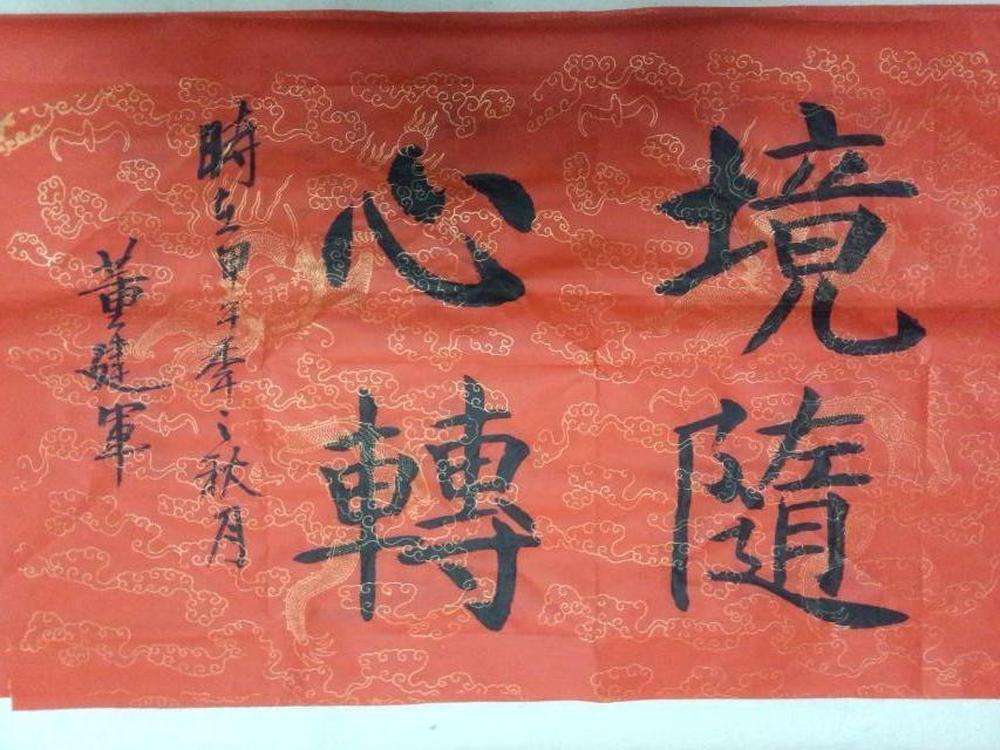 境隨
心轉
時在甲午季之秋月
董建軍